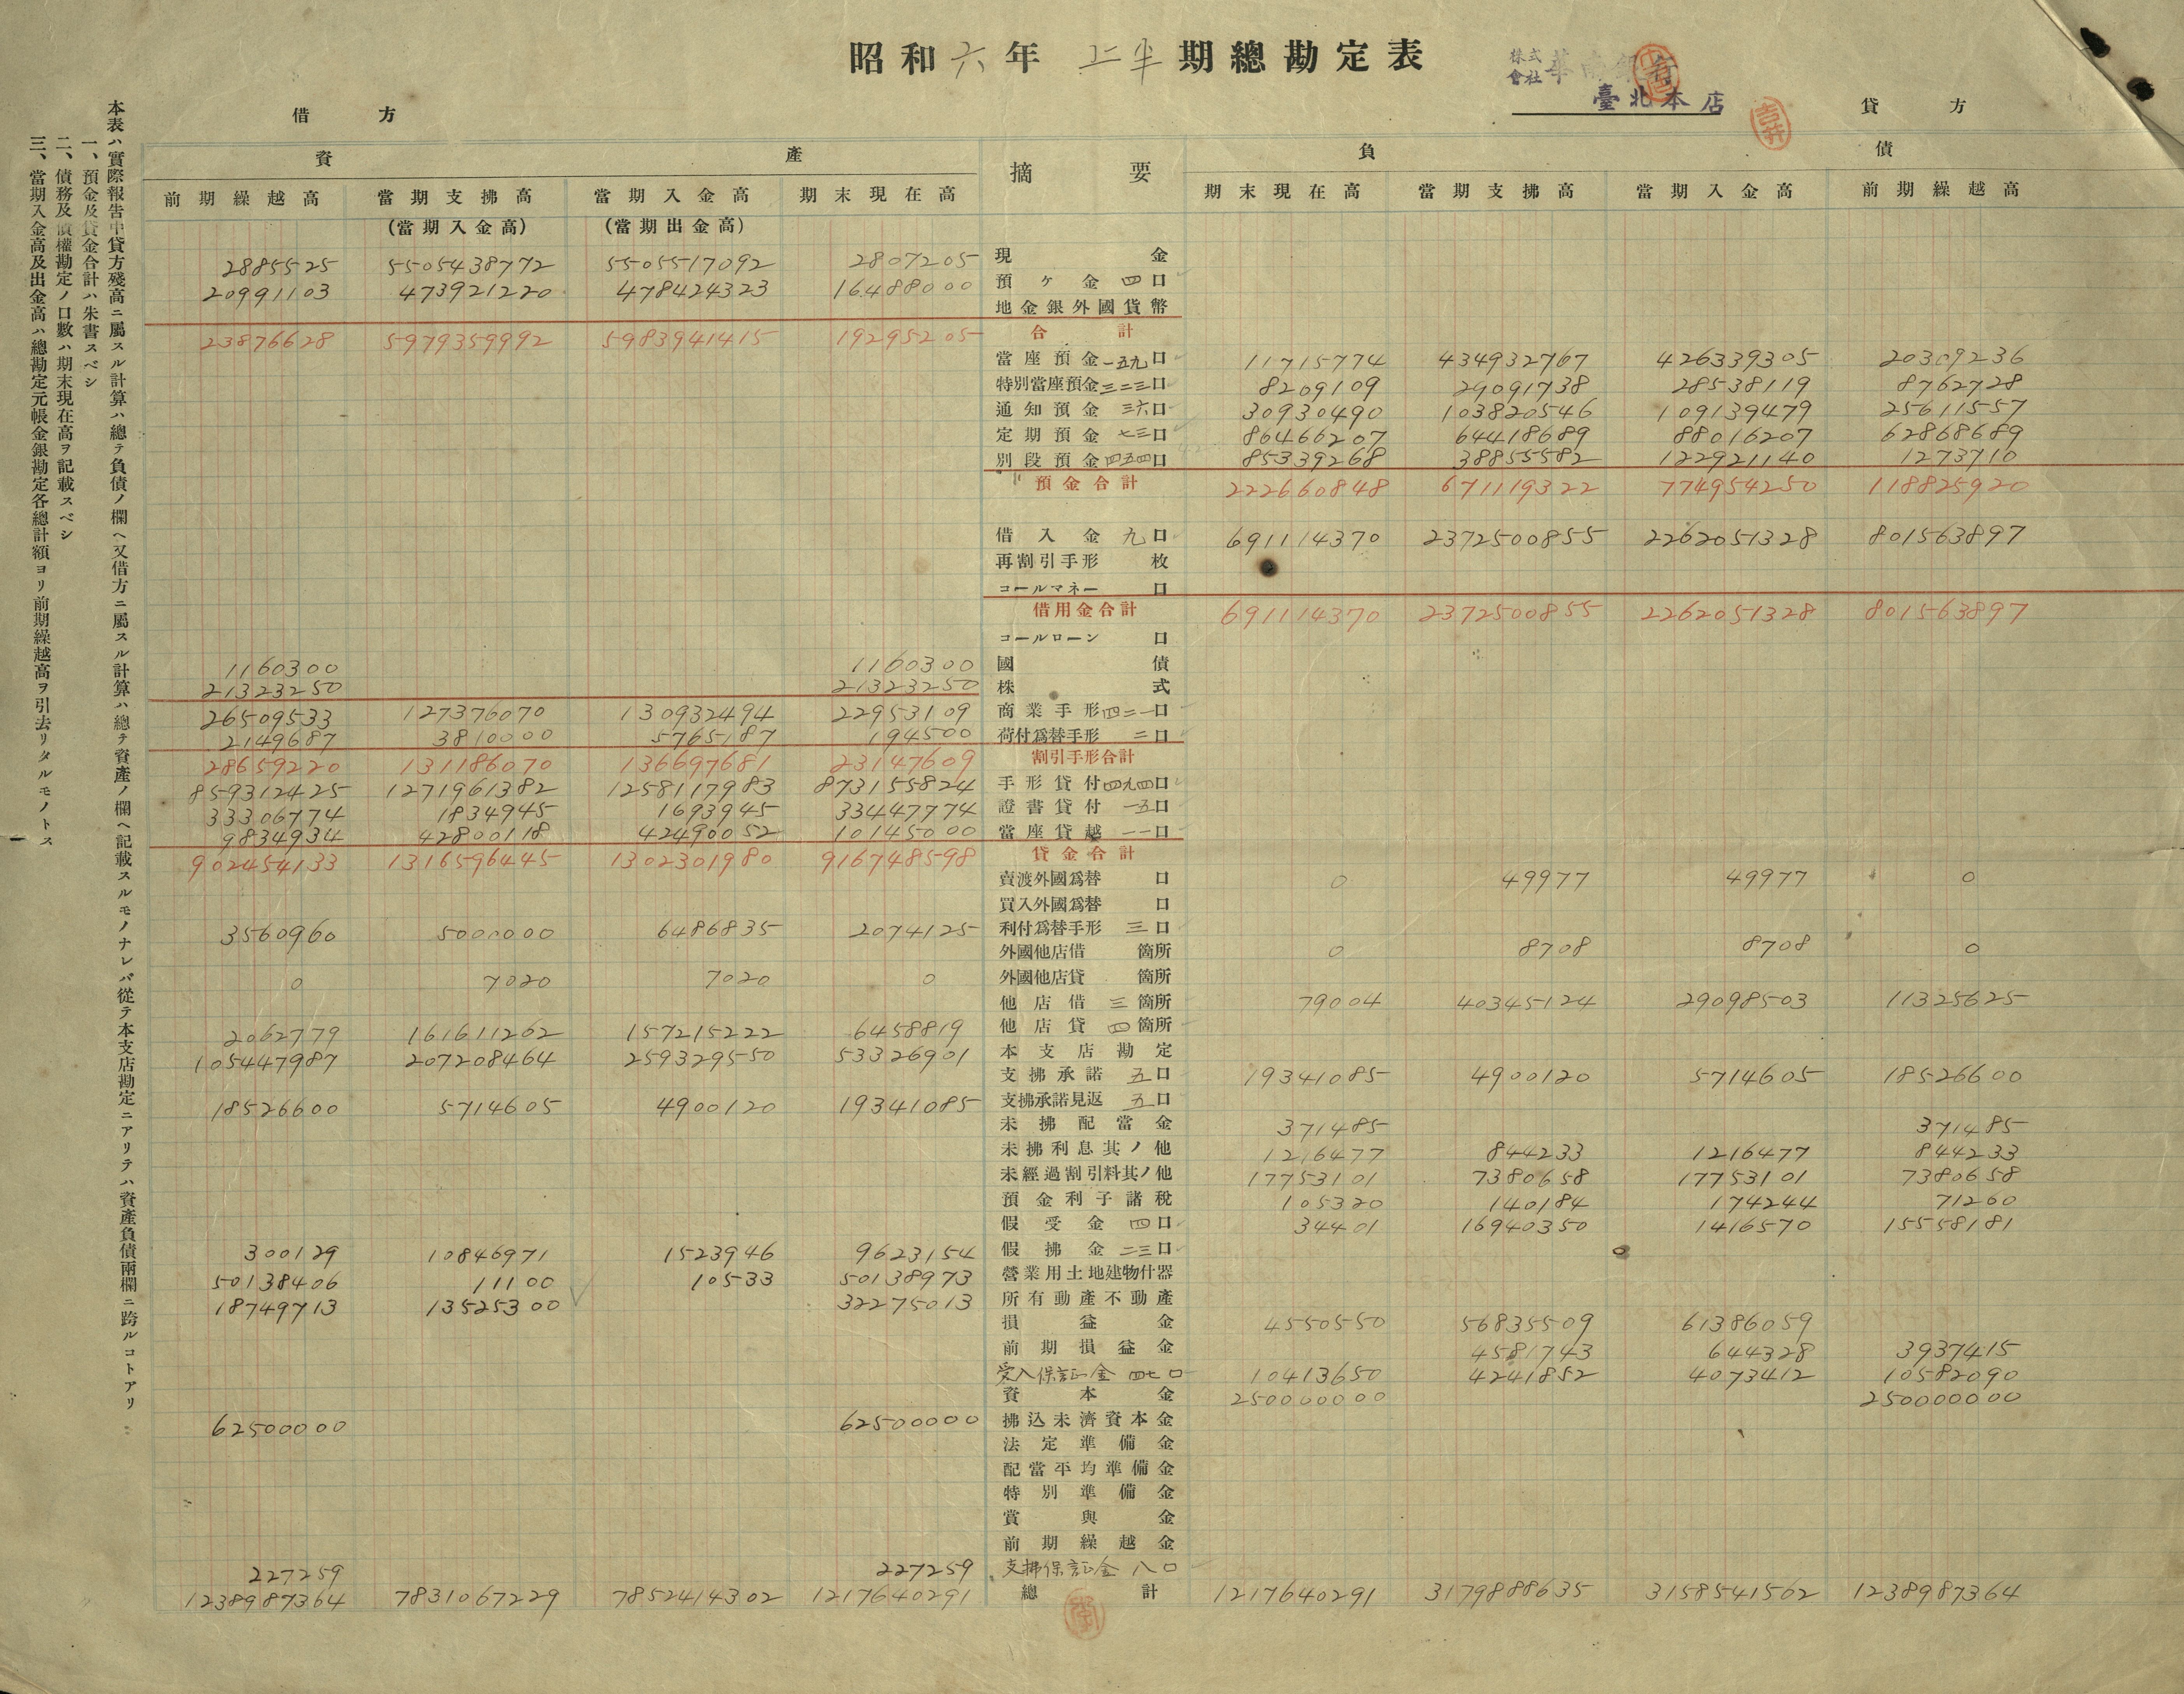 昭和六年 上半期總勘定表
株式會社華南銀行
臺北本店
吉井
借方 貸方
資產 摘要 負債
前期繰越高 當期支拂高(當期入金高) 當期入金高(當期出金高) 期末現在高 期末現在高 當期支拂高 當期入金高 前期繰越高
2885525 5505438772 5505517092 2807205 現金
20991103 473921220 478424323 16488000 預ケ金 四口
地金銀外國貨幣
23876628 5979359992 5983941415 19295205 合計
當座預金 一五九口 11715774 434932767 426339305 20309236
特別當座預金 三二三口 8209109 29091738 28538119 8762728
通知預金 三六口 30930490 103820546 109139479 25611557
定期預金 七三口 86466207 64418689 88016207 62868689
別段預金 四五四口 85339268 38855582 122921140 1273710
預金合計 222660848 671119322 774954250 118825920
借入金 九口 691114370 2372500855 2262051328 801563897
再割引手形 枚
コールマネー 口
借用金合計 691114370 2372500855 2262051328 801563897
コールローン 口
1160300 1160300 國債
21323250 21323250 株式
26509533 127376070 130932494 22953109 商業手形 四二一口
2149687 3810000 5765187 194500 荷付爲替手形 二口
28659220 131186070 136697681 23147609 割引手形合計
859312425 1271961382 1258117983 873155824 手形貸付 四九四口
33306774 1834945 1693945 33447774 證書貸付 一五口
9834934 42800118 42490052 10145000 當座貸越 一一口
902454133 1316596445 1302301980 916748598 貸金合計
賣渡外國爲替 口 0 49977 49977 0
買入外國爲替 口
3560960 5000000 6486835 2074125 利付爲替手形 三口
外國他店借 箇所 0 8708 8708 0
0 7020 7020 0 外國他店貸 箇所
他店借 三箇所 79004 40345124 29098503 11325625
2062779 161611262 157215222 6458819 他店貸 四箇所
105447987 207208464 259329550 53326901 本支店勘定
支拂承諾 五口 19341085 4900120 5714605 18526600
18526600 5714605 4900120 19341085 支拂承諾見返 五口
未拂配當金 371485 371485
未拂利息其ノ他 1216477 844233 1216477 844233
未經過割引料其ノ他 17753101 7380658 17753101 7380658
預金利子諸稅 105320 140184 174244 71260
假受金 四口 34401 16940350 1416570 15558181
300129 10846971 1523946 9623154 假拂金 二三口
50138406 11100 10533 50138973 營業用土地建物什器
18749713 13525300 32275013 所有動產不動產
損益金 4550550 56835509 61386059
前期損益金 4581743 644328 3937415
受入保証金 四七口 10413650 4241852 4073412 10582090
資本金 250000000 250000000
62500000 62500000 拂込未濟資本金
法定準備金
配當平均準備金
特別準備金
賞與金
前期繰越金
227259 227259 支拂保証金 八口
1238987364 7831067229 7852414302 1217640291 總計 1217640291 3179888635 3158541562 1238987364
本表ハ實際報告中貸方殘高ニ屬スル計算ハ總テ負債ノ欄ヘ又借方ニ屬スル計算ハ總テ資產ノ欄ヘ記載スルモノナレバ從テ本支店勘定ニアリテハ資產負債兩欄ニ跨ルコトアリ
一、預金及貸金合計ハ朱書スベシ
二、債務及債權勘定ノ口數ハ期末現在高ヲ記載スベシ
三、當期入金高及出金高ハ總勘定元帳金銀勘定各總計額ヨリ前期繰越高ヲ引去リタルモノトス